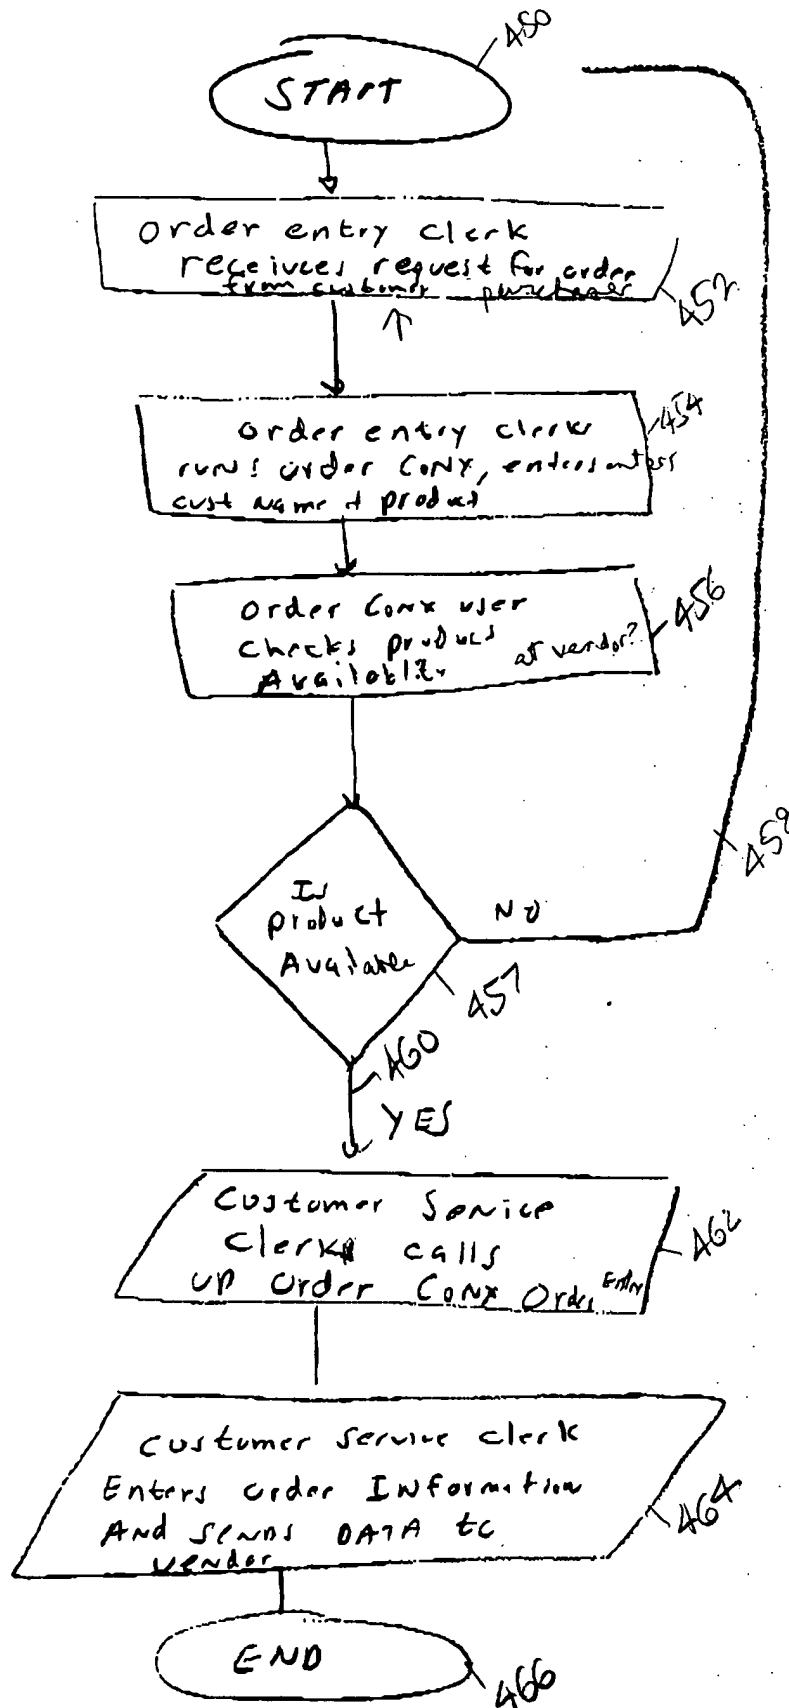 450
START
Order entry clerk
receives request for order
from customer purchaser
452
Order entry clerk
454
runs order CONX, enters enters
cust Name + product
Order Conx user
456
checks product
at vendor?
Availability
459
Is
product
Available
NO
457
460
YES
Customer Service
Clerk calls
462
up Order CONX Order Entry
Customer Service clerk
Enters order INformation
464
And sends DATA to
vendor
END
466